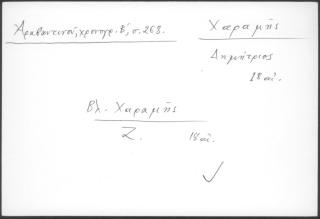 Ἀραβαντινοῦ, χρονογρ. Β', σ. 268.
Χαραμῆς
Δημήτριος
18 αἰ.
Βλ. Χαραμῆς
Ζ. 18 αἰ.